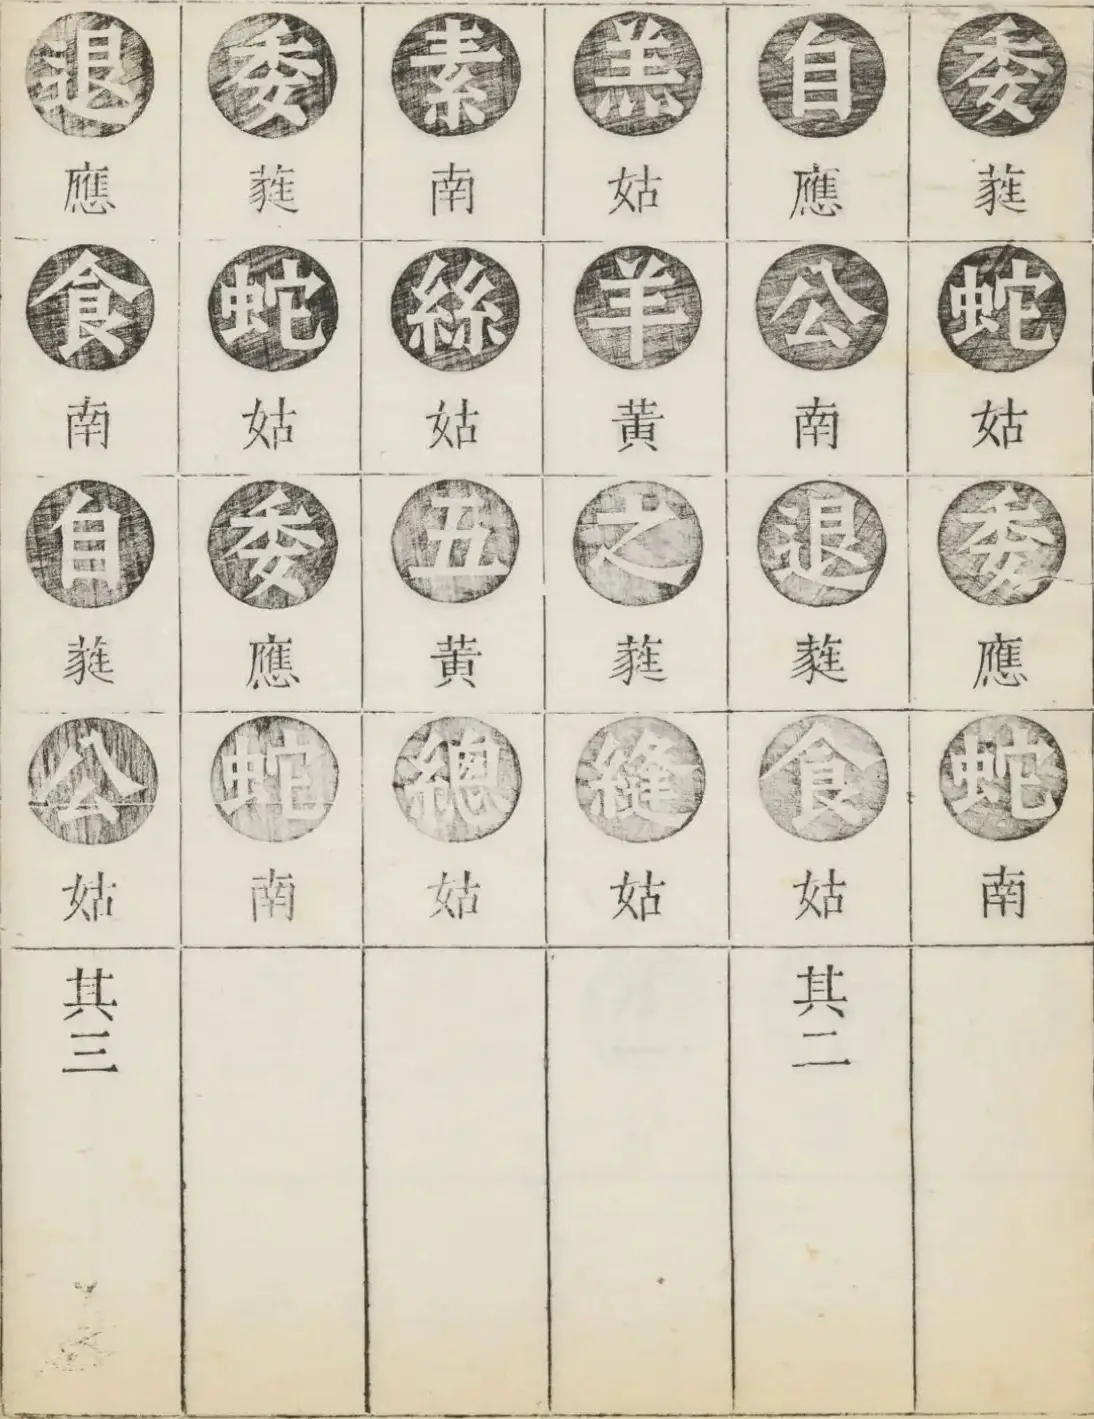 委蕤蛇姑委應蛇南
自應公南退蕤食姑其二
羔姑羊黃之蕤縫姑
素南絲姑五黃總姑
委蕤蛇姑委應蛇南
退應食南自蕤公姑其三